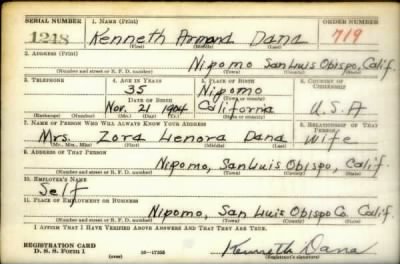 SERIAL NUMBER 1. NAME (Print) ORDER NUMBER
1218 Kenneth Armand Dana 719
(First) (Middle) (Last)
2. ADDRESS (Print)
Nipomo San Luis Obispo, Calif.
(Number and street or R. F. D. number) (Town) (County) (State)
3. TELEPHONE 4. AGE IN YEARS 5. PLACE OF BIRTH 6. COUNTRY OF CITIZENSHIP
35 Nipomo
DATE OF BIRTH (Town or county)
Nov. 21 1904 California U.S.A
(Exchange) (Number) (Mo.) (Day) (Yr.) (State or country)
7. NAME OF PERSON WHO WILL ALWAYS KNOW YOUR ADDRESS 8. RELATIONSHIP OF THAT PERSON
Mrs. Zora Lenora Dana Wife
(Mr., Mrs., Miss) (First) (Middle) (Last)
9. ADDRESS OF THAT PERSON
Nipomo, San Luis Obispo, Calif.
(Number and street or R. F. D. number) (Town) (County) (State)
10. EMPLOYER'S NAME
Self
11. PLACE OF EMPLOYMENT OR BUSINESS
Nipomo, San Luis Obispo Co. Calif.
(Number and street or R. F. D. number) (Town) (County) (State)
I AFFIRM THAT I HAVE VERIFIED ABOVE ANSWERS AND THAT THEY ARE TRUE.
REGISTRATION CARD
D. S. S. Form 1 (over) 16—17105 Kenneth Dana
(Registrant's signature)